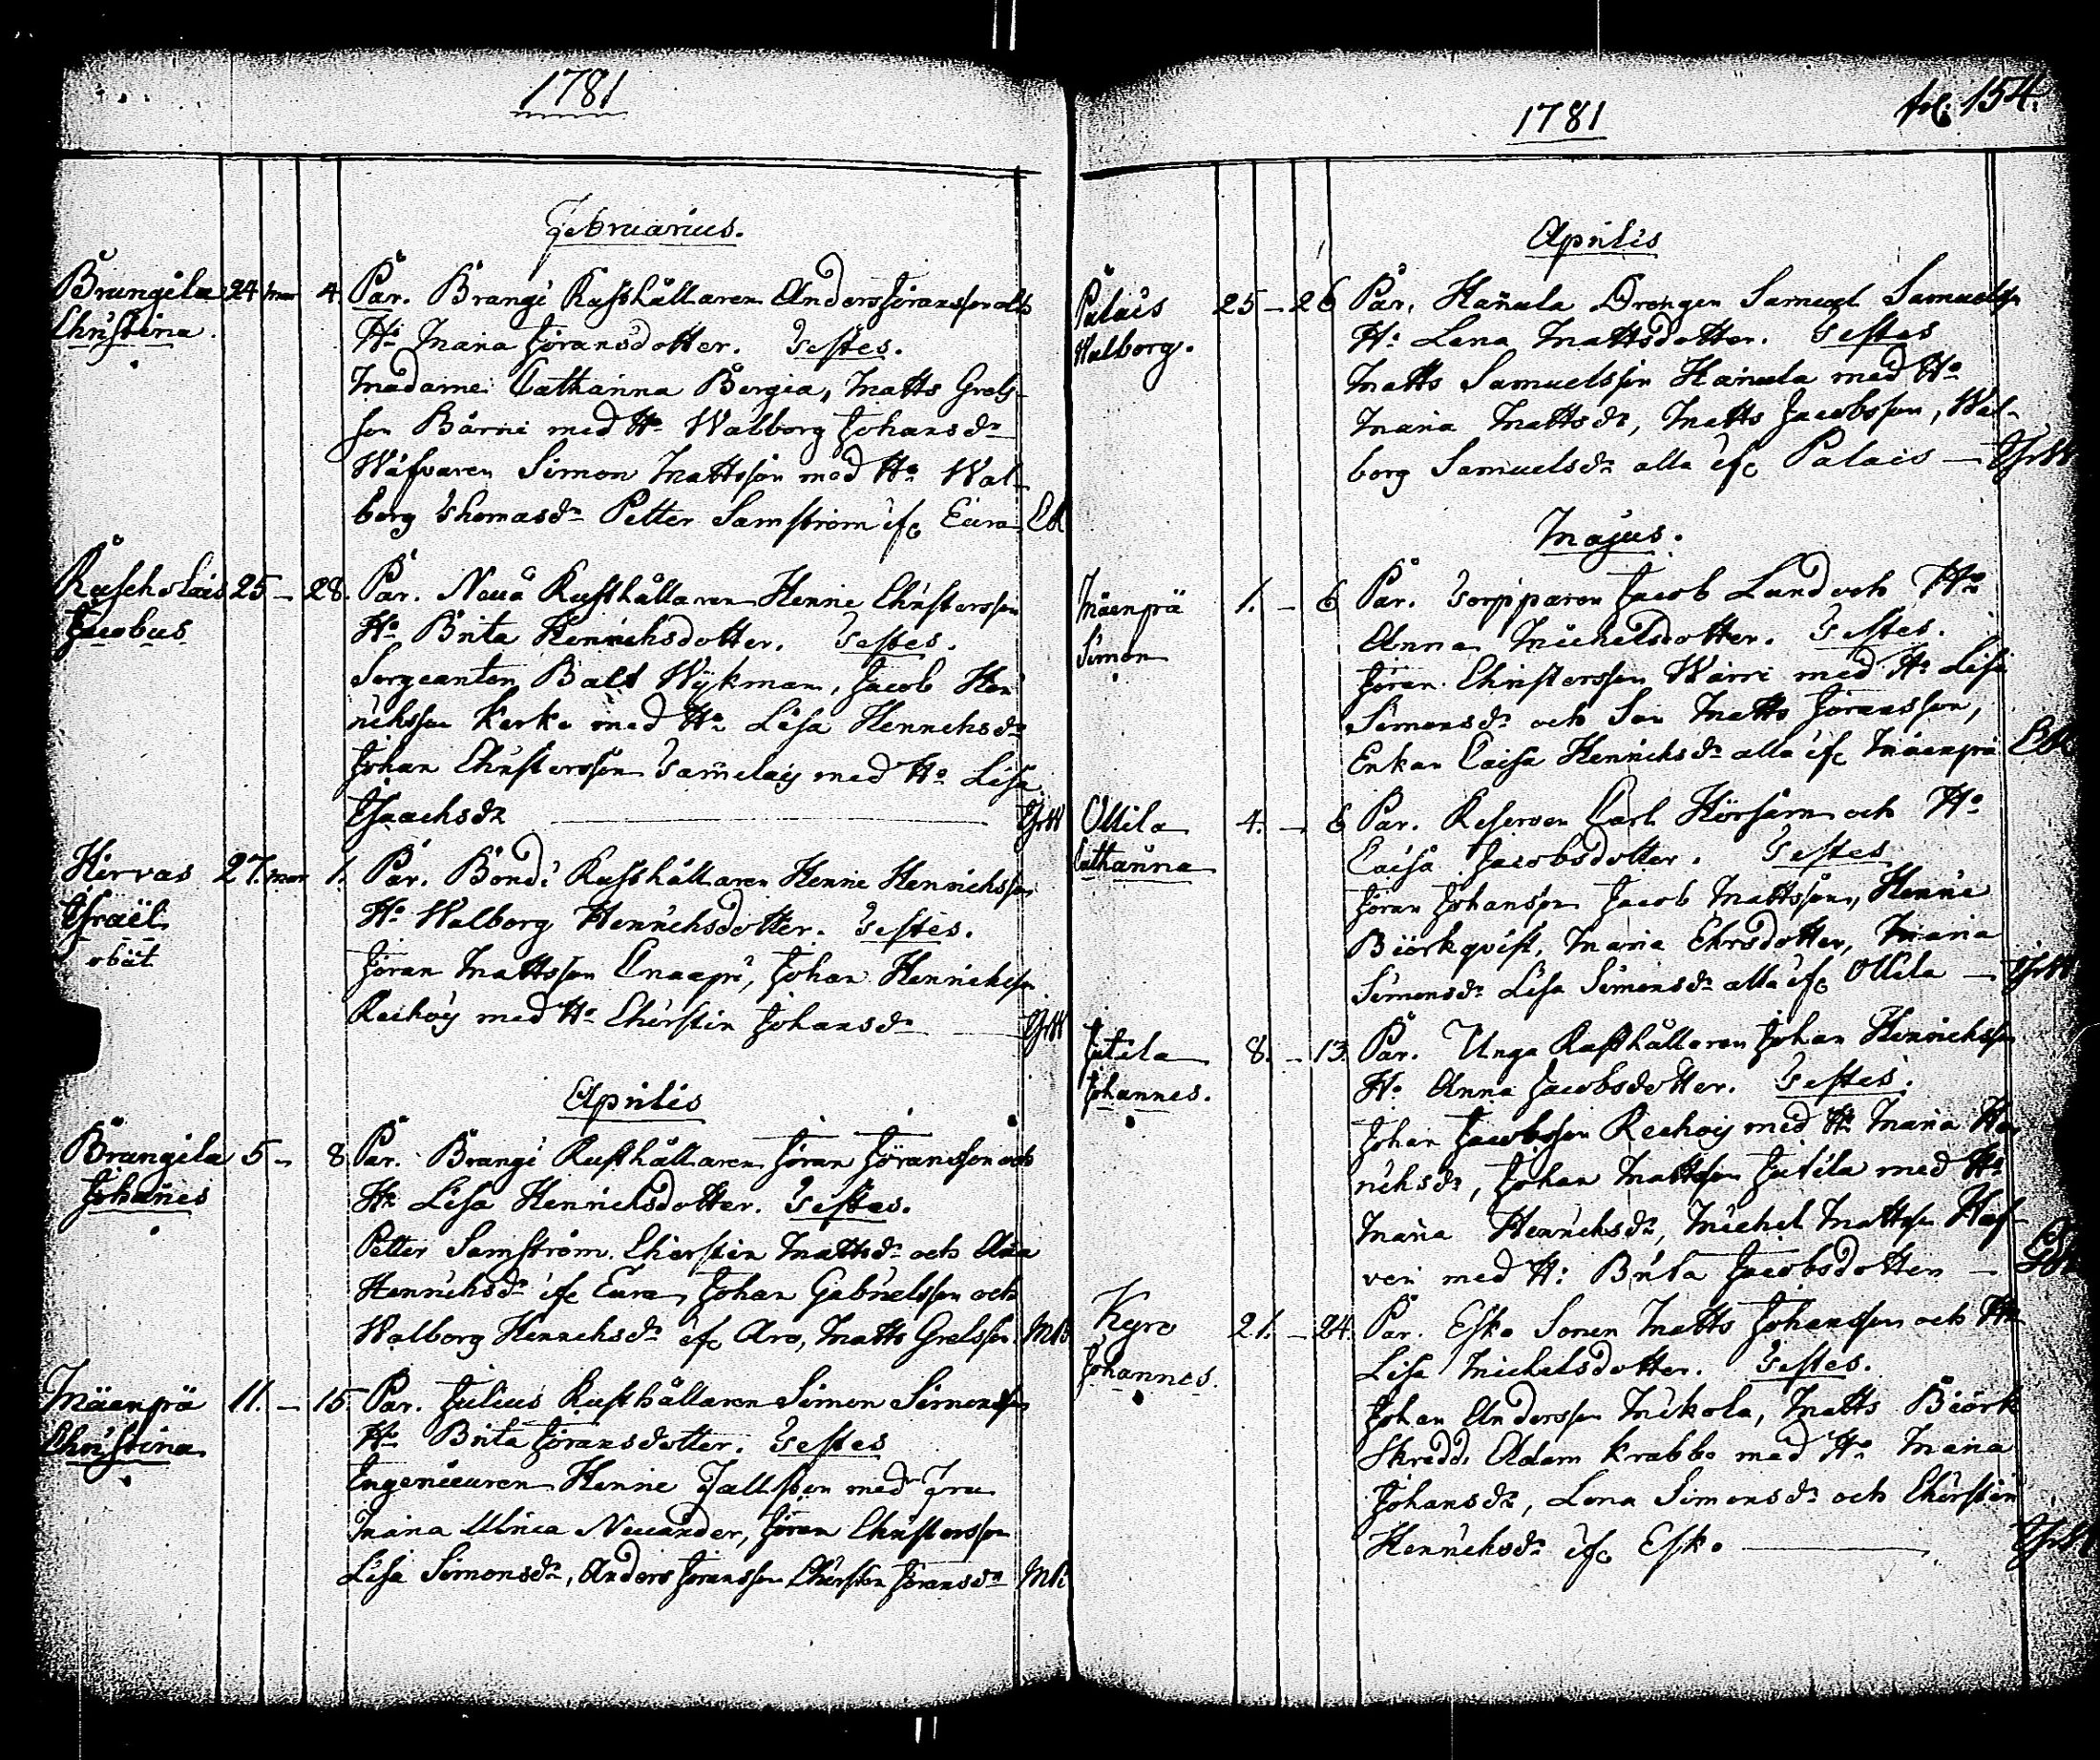 1781
Februarius.
Brangila 24 mar 4. Par. Brangi Rusthållaren Anders Jöransson och
Christina. Hu Maria Jöransdotter. Testes.
Madame Catharina Bergia, Matts Grels-
son Bärni med Hu Walborg Johansdr
Wäfvaren Simon Mattsson med Hu Wal-
borg Thomasdr Petter Samström ifr Eura
Rascholais 25 – 28. Par. Neuä Rusthållaren Henric Christersson
Jacobus Hu Brita Henrichsdotter. Testes.
Sergeanten Balt Wykman, Jacob Hen
richsson Kerko med Hu Lisa Henrichsdr
Johan Christersson Sameloij med Hu Lisa
Isaachsdr
Hirvas 27. mar 1. Par. Bondi Rusthållaren Henric Henrichsson
Israël Hu Walborg Henrichsdotter. Testes.
obiit Jöran Mattsson Knaapi, Johan Henrichsson
Reehoij med Hu Chirstin Johansdr
Aprilis
Brangila 5 – 8 Par. Brangi Rusthållaren Jöran Jöransson och
Johañes Hu Lisa Henrichsdotter. Testes.
Petter Samström. Chirstin Mattsdr och
Henrichsdr ifr Eura, Johan Gabrielsson och
Walborg Henrichsdr ifr Aro, Matts Grelsson.
Mäenpä 11. – 15. Par. Julius Rusthållaren Simon Simonsson
Christina Hu Brita Jöransdotter. Testes
Ingenieuren Henric Fallsten med Fru
Maria Ulrica Neuander, Jöran Christersson
Lisa Simonsdr, Anders Jöransson Chirstin Jöransdr
1781
fol. 154.
Aprilis
Palais 25 – 26 Par. Hañula Drengen Samuel Samuelsson
Walborg. Hu Lena Mattsdotter. Testes
Matts Samuelsson Hañula med Hu
Maria Mattsdr, Matts Jacobsson, Wal-
borg Samuelsdr alla ifr Palais –
Majus.
Mäenpä 1. – 6 Par. Torpparen Jacob Lund och Hu
Simon Anna Michelsdotter. Testes.
Jöran Christersson Wärri med Hu Lisa
Simonsdr och Son Matts Jöransson,
Enkan Caisa Henrichsdr alla ifr Mäenpä
Ollila 4. – 6 Par. Reserven Carl Hörsam och Hu
Catharina Caisa Jacobsdotter. Testes
Jöran Johansson Jacob Mattsson, Henric
Biörkqvist, Maria Ehrsdotter, Maria
Simonsdr Lisa Simonsdr alla ifr Ollila –
Jutila 8. – 13. Par. Unga Rusthållaren Johan Henrichsson
Johannes. Hu Anna Jacobsdotter. Testes.
Johan Jacobsson Reehoij med Hu Maria Hen
richsdr, Johan Mattsson Jutila med Hu
Maria Henrichsdr, Michel Mattsson Haf-
veri med Hu Brita Jacobsdotter –
Kyro 21. – 24. Par. Esko Sonen Matts Johansson och Hu
Johannes. Lisa Michelsdotter. Testes.
Johan Andersson Mikola, Matts Biörk
Skredd. Adam Krabbe med Hu Maria
Johansdr, Lena Simonsdr och Chirstin
Henrichsdr ifr Esko